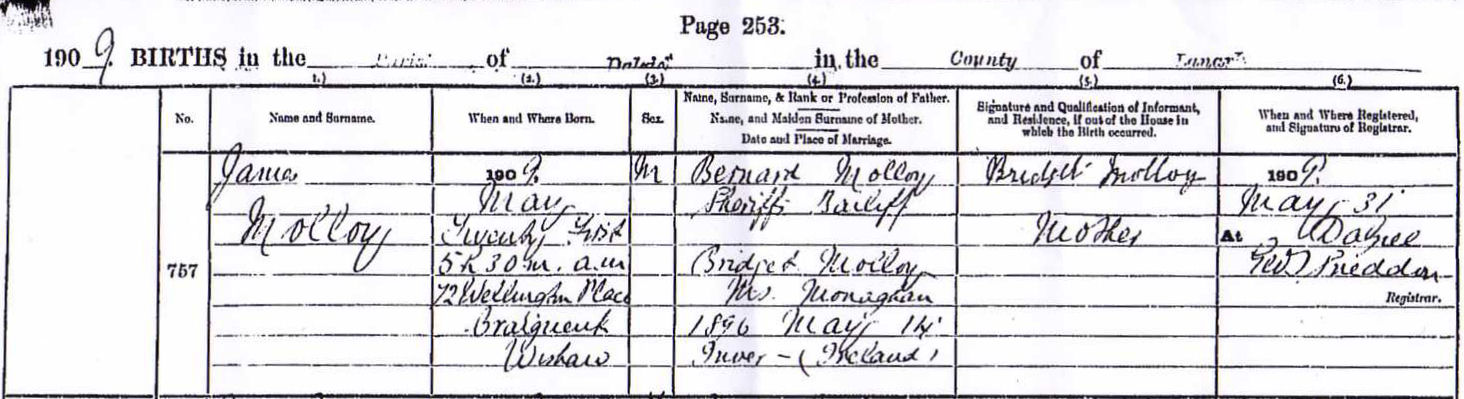 Page 253.
1909. BIRTHS in the Parish of Dalziel in the County of Lanark
(1.) (2.) (3.) (4.) (5.) (6.)
No.
Name and Surname.
When and Where Born.
Sex.
Name, Surname, & Rank or Profession of Father.
Name, and Maiden Surname of Mother.
Date and Place of Marriage.
Signature and Qualification of Informant,
and Residence, if out of the House in
which the Birth occurred.
When and Where Registered,
and Signature of Registrar.
757
James
Molloy
1909.
May
Twenty First
5h 30m. a.m
72 Wellington Place
Wishaw
M
Bernard Molloy
Sheriff's Bailiff
Bridget Molloy
Ms. Monaghan
1896 May 14
Inver - (Ireland)
Bridget Molloy
Mother
1909.
May 31
At Dalziel
Registrar.